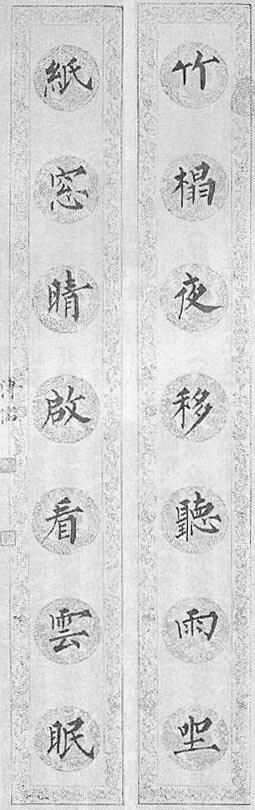 竹榻夜移聽雨坐
紙窓晴啟看雲眠